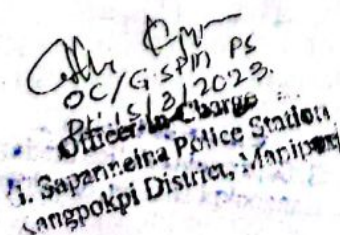 OC/G. SPM PS
Dt. 15/3/2023.
Officer-in-Charge
. Sapermeina Police Station
angpokpi District, Manipur